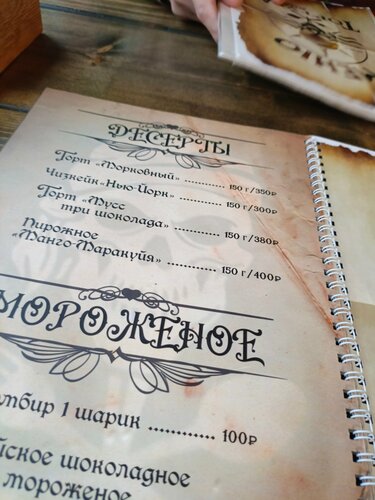 ДЕСЕРТЫ
Торт «Морковный» ............ 150 г/350₽
Чизкейк «Нью-Йорк» ............ 150 г/300₽
Торт «Мусс
три шоколада» ............ 150 г/380₽
Пирожное
«Манго-Маракуйя» ............ 150 г/400₽
МОРОЖЕНОЕ
1 шарик ............ 100₽
шоколадное
мороженое